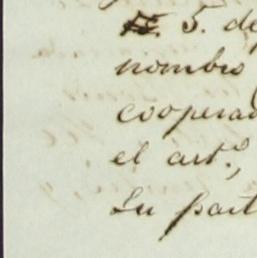 5. de
nombro
coopera
el art.º,
Su part